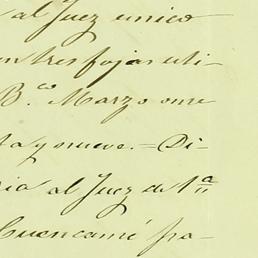 al Juez unico
en tres fojas uti-
B.co Marzo onse
ta y nueve.= Di-
ria al Juez de 1.a
Cuencamé pa-